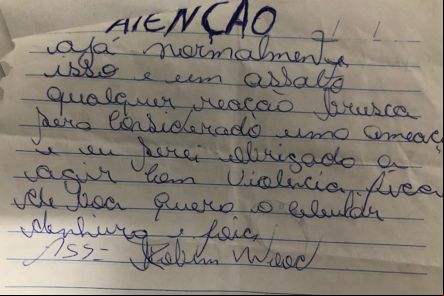 ATENÇÃO
ajá normalmente
isso e um assalto
qualquer reação brusca
sera considerado uma ameaç
e eu serei obrigado a
agir com violencia. fica
de boa quero o celular
dinhiro e
Ass- Robim Wood